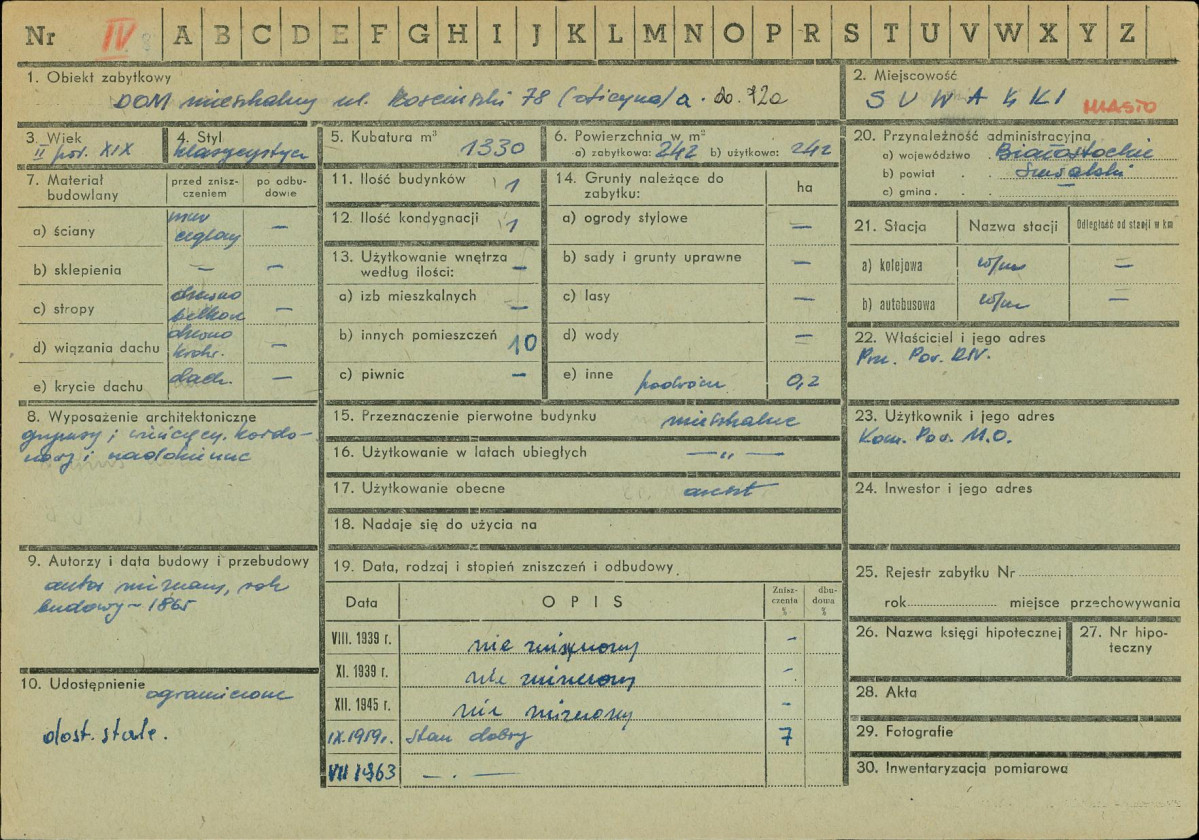 Nr IV 8 A B C D E F G H I J K L M N O P R S T U V W X Y Z
1. Obiekt zabytkowy
DOM mieszkalny ul. Kościuszki 78 (oficyna) a. do. 72a
2. Miejscowość
SUWAŁKI MIASTO
3. Wiek
II poł. XIX
4. Styl
klasycystycz
5. Kubatura m³
1330
6. Powierzchnia w m²
a) zabytkowa: 242 b) użytkowa: 242
7. Materiał budowlany
przed znisz-
czeniem
po odbu-
dowie
a) ściany mur ceglany —
b) sklepienia — —
c) stropy drewno belkow —
d) wiązania dachu drewno krokw. —
e) krycie dachu dach. —
8. Wyposażenie architektoniczne
gzymsy; wieńczący. kordo-
nowy i nadokienne
9. Autorzy i data budowy i przebudowy
autor nieznany, rok
budowy ~ 1865
10. Udostępnienie ograniczone
dost. stałe.
11. Ilość budynków 1
12. Ilość kondygnacji 1
13. Użytkowanie wnętrza
według ilości: —
a) izb mieszkalnych —
b) innych pomieszczeń 10
c) piwnic —
14. Grunty należące do
zabytku:
ha
a) ogrody stylowe —
b) sady i grunty uprawne —
c) lasy —
d) wody —
e) inne podwórze 0,2
15. Przeznaczenie pierwotne budynku mieszkalne
16. Użytkowanie w latach ubiegłych — „ —
17. Użytkowanie obecne areszt
18. Nadaje się do użycia na
19. Data, rodzaj i stopień zniszczeń i odbudowy
Data OPIS
Znisz-
czenia
%
dbu-
dowa
%
VIII. 1939 r. nie zniszczony -
XI. 1939 r. nie zniszczony -
XII. 1945 r. nie zniszczony -
IX.1959r. stan dobry 7
VII 1963 — . —
20. Przynależność administracyjna
a) województwo . Białostockie
b) powiat . . Suwalski
c) gmina .
21. Stacja Nazwa stacji Odległość od stacji w km
a) kolejowa w/m —
b) autobusowa w/m —
22. Właściciel i jego adres
Prez. Pow. RN.
23. Użytkownik i jego adres
Kom. Pow. M.O.
24. Inwestor i jego adres
25. Rejestr zabytku Nr
rok miejsce przechowywania
26. Nazwa księgi hipotecznej
27. Nr hipo-
teczny
28. Akta
29. Fotografie
30. Inwentaryzacja pomiarowa